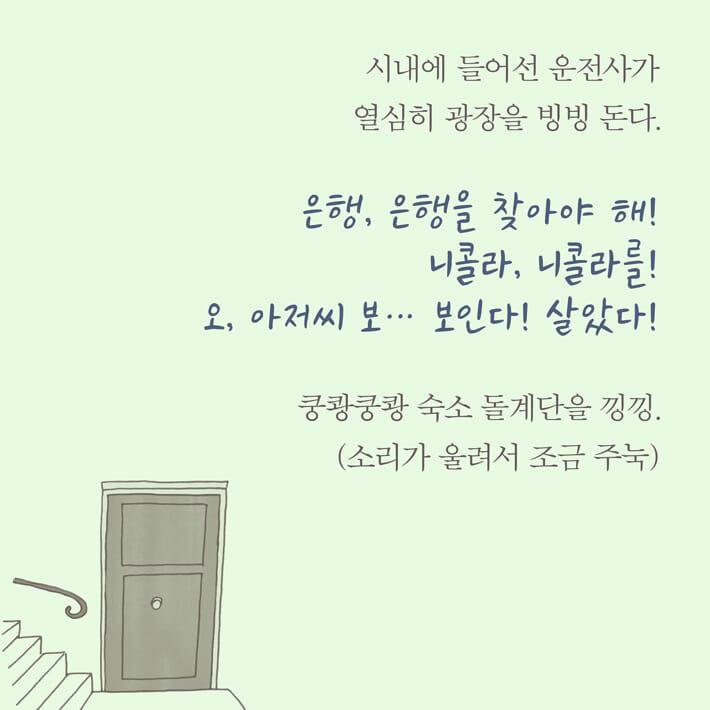 시내에 들어선 운전사가
열심히 광장을 빙빙 돈다.
은행, 은행을 찾아야 해!
니콜라, 니콜라를!
오, 아저씨 보… 보인다! 살았다!
쿵쾅쿵쾅 숙소 돌계단을 낑낑.
(소리가 울려서 조금 주눅)